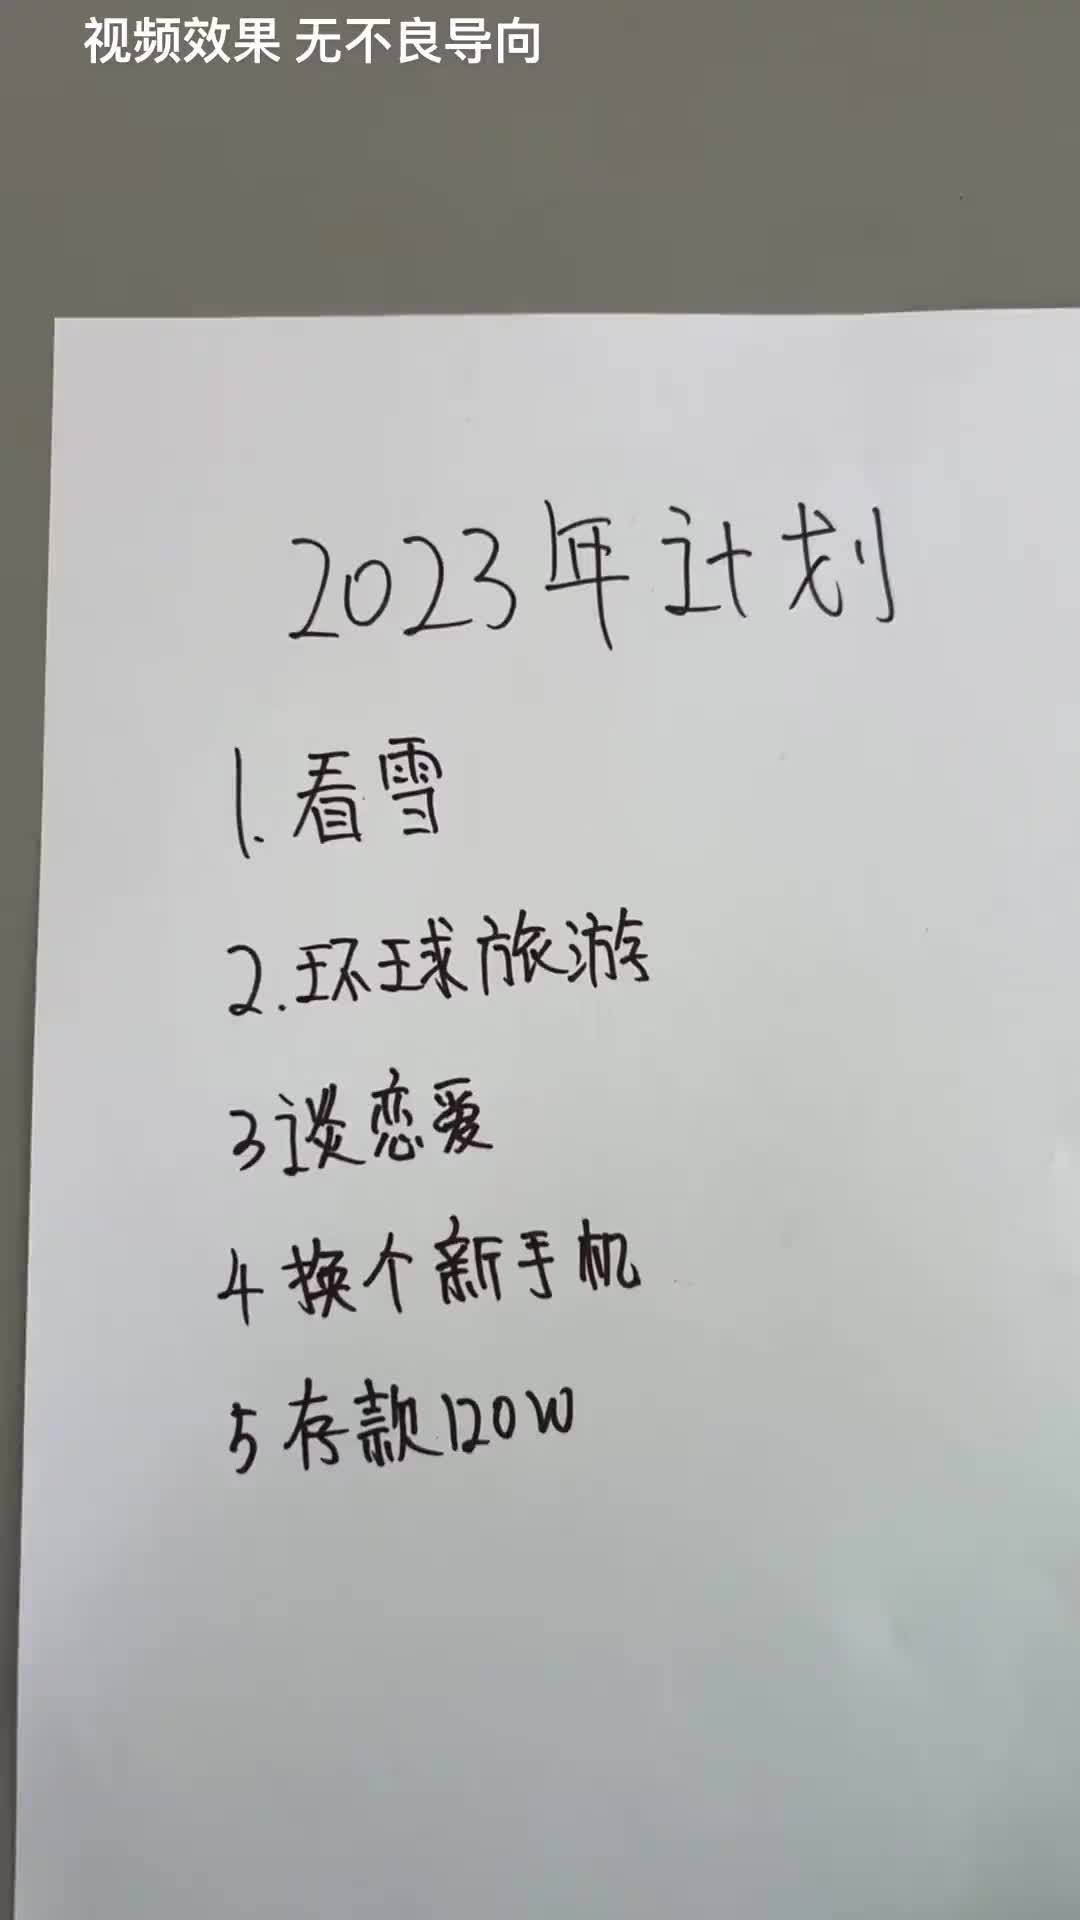 视频效果 无不良导向
2023年计划
1.看雪
2.环球旅游
3谈恋爱
4换个新手机
5存款120W